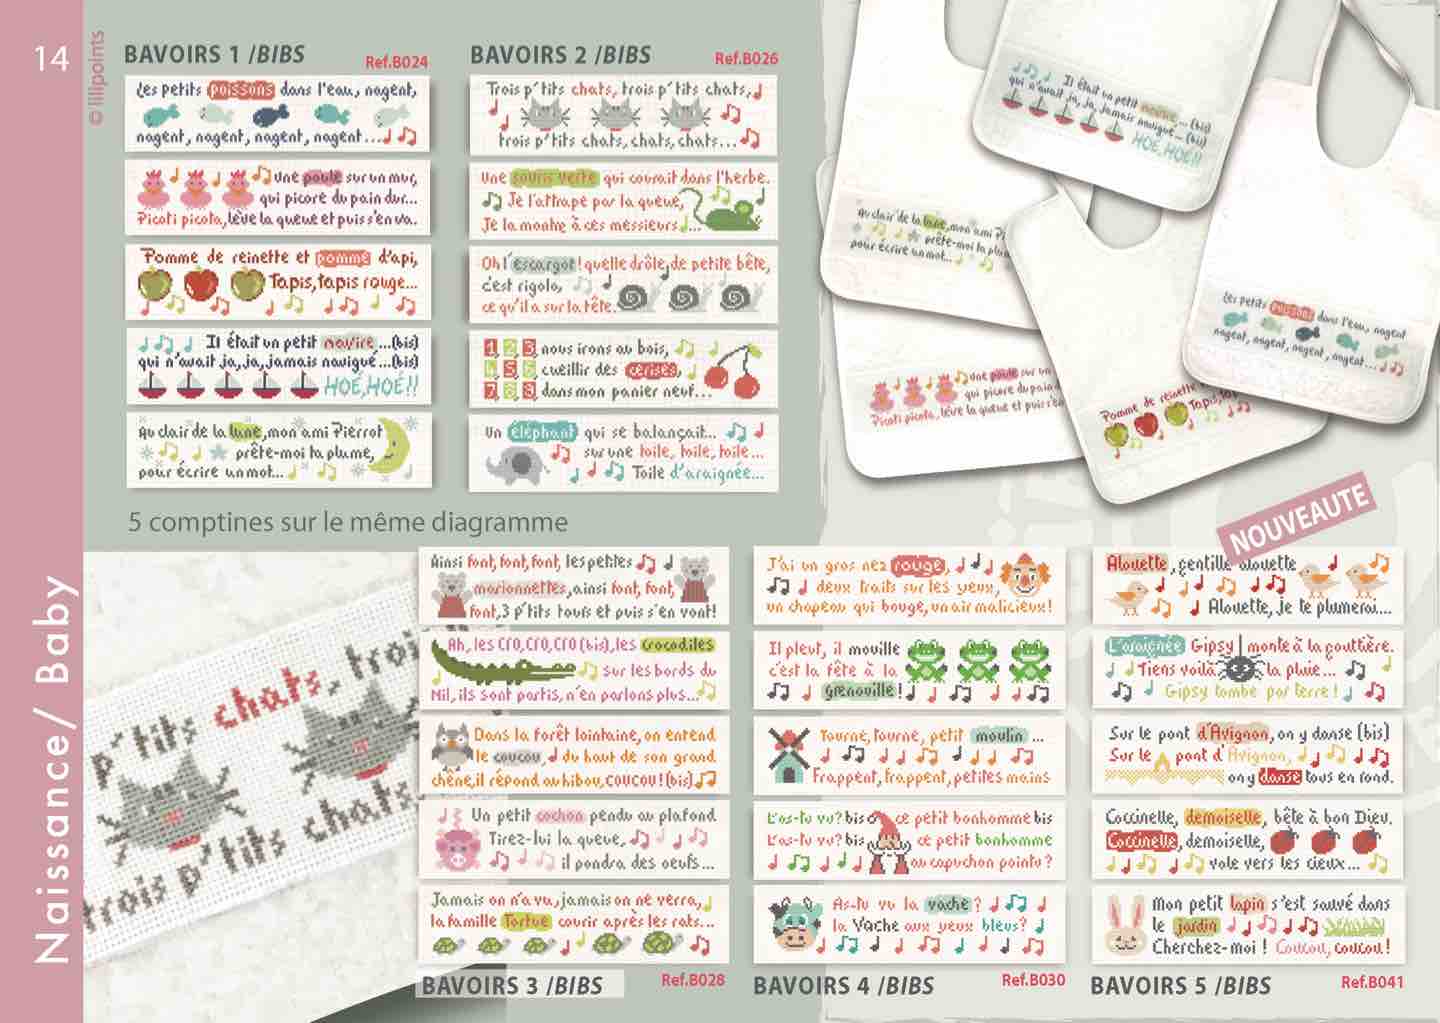 14
© lilipoints
Naissance/ Baby
BAVOIRS 1 /BIBS
Ref.B024
Les petits poissons dans l'eau, nagent,
nagent, nagent, nagent, nagent...
Une poule sur un mur,
qui picore du pain dur...
Picoti picota, lève la queue et puis s'en va.
Pomme de reinette et pomme d'api,
Tapis, tapis rouge...
Il était un petit navire ...(bis)
qui n'avait ja, ja, jamais navigué ...(bis)
HOÉ, HOÉ!!
Au clair de la lune, mon ami Pierrot
prête-moi ta plume,
pour écrire un mot...
BAVOIRS 2 /BIBS
Ref.B026
Trois p'tits chats, trois p'tits chats,
trois p'tits chats, chats, chats...
Une souris verte qui courait dans l'herbe.
Je l'attrape par la queue,
Je la montre à ces messieurs...
Oh l'escargot! quelle drôle, de petite bête,
c'est rigolo,
ce qu'il a sur la tête.
1, 2, 3, nous irons au bois,
4, 5, 6, cueillir des cerises,
7, 8, 9, dans mon panier neuf...
Un éléphant qui se balançait...
sur une toile, toile, toile...
Toile d'araignée...
5 comptines sur le même diagramme
Il était un petit navire,... (bis)
qui n'avait ja, ja, jamais navigué... (bis)
HOÉ, HOÉ!!
Au clair de la lune, mon ami Pi
prête-moi ta plum
pour écrire un mot...
Les petits poissons dans l'eau, nagent
nagent, nagent, nagent, nagent...
Une poule sur un
qui picore du pain d
Picoti picota, lève la queue et puis s'en
Pomme de reinette
Tapis, ta
NOUVEAUTE
p'tits chats, troi
trois p'tits chats,
Ainsi font, font, font, les petites
marionnettes, ainsi font, font,
font, 3 p'tits tours et puis s'en vont!
Ah, les cro, cro, cro (bis), les crocodiles
sur les bords du
Nil, ils sont partis, n'en parlons plus...
Dans la forêt lointaine, on entend
le coucou, du haut de son grand
chêne, il répond au hibou, coucou! (bis)
Un petit cochon pendu au plafond
Tirez-lui la queue,
il pondra des oeufs...
Jamais on n'a vu, jamais on ne verra,
la famille Tortue courir après les rats...
BAVOIRS 3 /BIBS
Ref.B028
J'ai un gros nez rouge,
deux traits sur les yeux,
un chapeau qui bouge, un air malicieux!
Il pleut, il mouille
c'est la fête à la
grenouille!
Tourne, tourne, petit moulin ...
Frappent, frappent, petites mains
L'as-tu vu? bis ce petit bonhomme bis
L'as-tu vu? bis ce petit bonhomme
au capuchon pointu?
As-tu vu la vache?
la Vache aux yeux bleus?
BAVOIRS 4 /BIBS
Ref.B030
Alouette, gentille alouette
Alouette, je te plumerai...
L'araignée Gipsy monte à la gouttière.
Tiens voilà la pluie...
Gipsy tombe par terre!
Sur le pont d'Avignon, on y danse (bis)
Sur le pont d'Avignon,
on y danse tous en rond.
Coccinelle, demoiselle, bête à bon Dieu.
Coccinelle, demoiselle,
vole vers les cieux...
Mon petit lapin s'est sauvé dans
le jardin
Cherchez-moi! Coucou, coucou!
BAVOIRS 5 /BIBS
Ref.B041